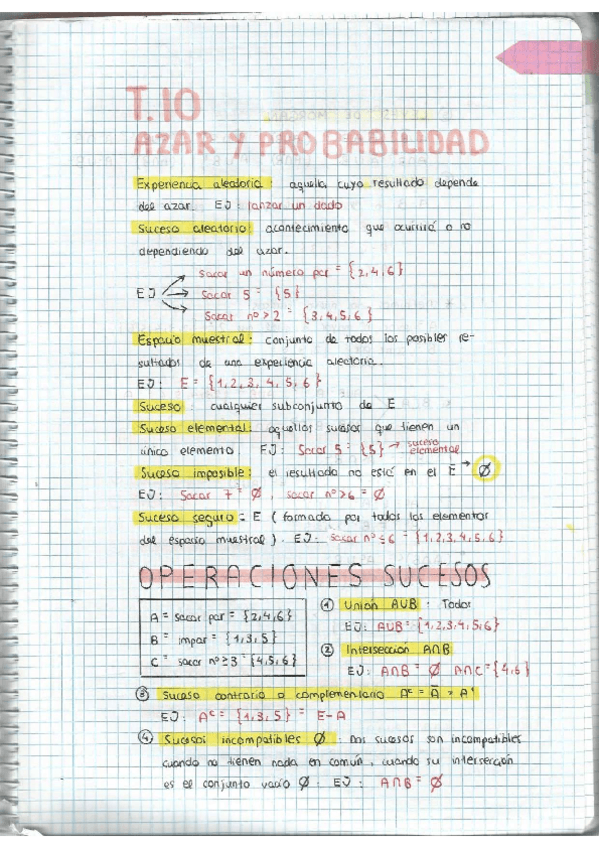 T.10
AZAR Y PROBABILIDAD
Experiencia aleatoria : aquella cuyo resultado depende
del azar. EJ : lanzar un dado
Suceso aleatorio : acontecimiento que ocurrirá o no
dependiendo del azar.
Sacar un número par = {2,4,6}
EJ Sacar 5 = {5}
Sacar nº > 2 = {3,4,5,6}
Espacio muestral : conjunto de todos los posibles re-
sultados de una experiencia aleatoria.
EJ : E = {1, 2, 3, 4, 5, 6}
Suceso : cualquier subconjunto de E
Suceso elemental : aquellos sucesos que tienen un
único elemento EJ : Sacar 5 = {5} → suceso elemental
Suceso imposible : el resultado no está en el E → Ø
EJ : Sacar 7 = Ø , sacar nº > 6 = Ø
Suceso seguro = E ( formado por todos los elementos
del espacio muestral ). EJ : Sacar nº ≤ 6 = {1,2,3,4,5,6}
OPERACIONES SUCESOS
A = sacar par = {2,4,6}
B = impar = {1,3,5}
C = sacar nº ≥ 3 = {4,5,6}
① Unión AUB : Todos
EJ : AUB = {1,2,3,4,5,6}
② Intersección A∩B
EJ : A∩B = Ø A∩C = {4,6}
③ Suceso contrario o complementario Aᶜ = Ā = A'
EJ : Aᶜ = {1,3,5} = E-A
④ Sucesos incompatibles Ø : Dos sucesos son incompatibles
cuando no tienen nada en común, cuando su intersección
es el conjunto vacío Ø. EJ : A∩B = Ø